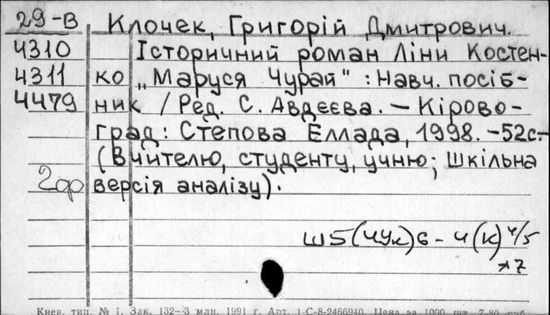 29-В Клочек, Григорій Дмитрович.
4310 Історичний роман Ліни Костен-
4311 ко „Маруся Чурай" : Навч. посіб-
4479 ник / Ред. С. Авдєєва. – Кірово-
град: Степова Еллада, 1998. -52с.-
(Вчителю, студенту, учню; Шкільна
2др версія аналізу).
Ш5(4Ук)6-4(К)4/5
*7
Киев. тип. № 1. Зак. 132—3 млн. 1991 г. Арт. 1-С-8-2466940. Цена за 1000 шт. 7-80 руб.